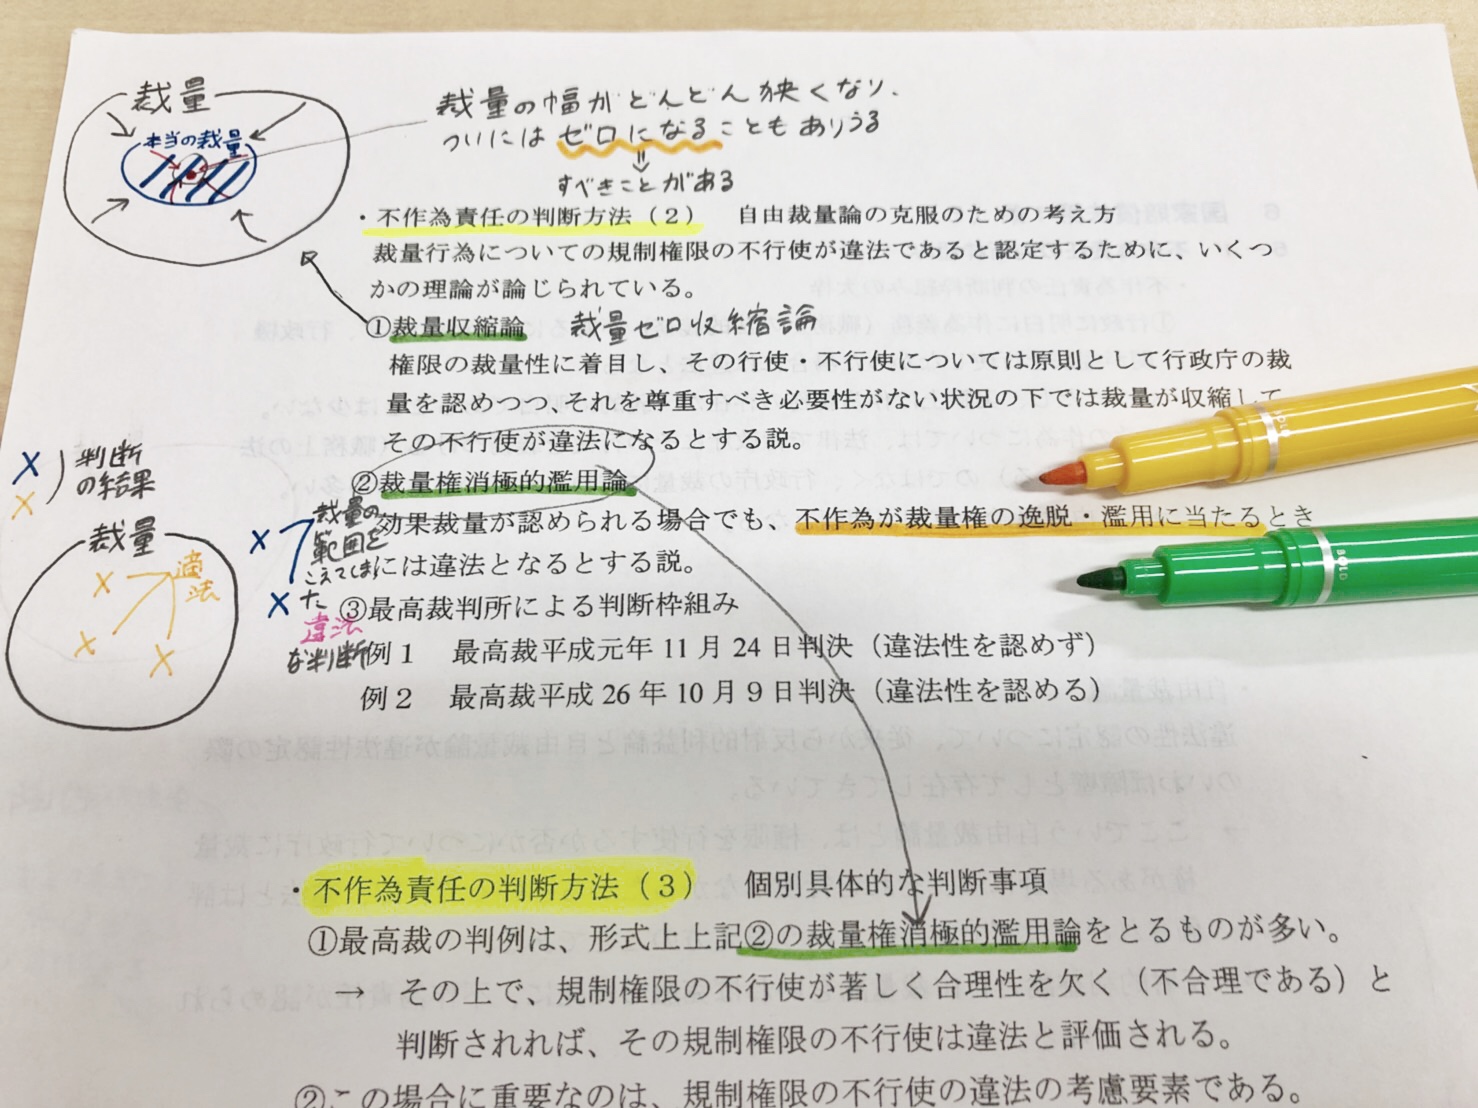 裁量
本当の裁量
裁量の幅がどんどん狭くなり、
ついにはゼロになることもありうる
すべきことがある
・不作為責任の判断方法（2） 自由裁量論の克服のための考え方
裁量行為についての規制権限の不行使が違法であると認定するために、いくつ
かの理論が論じられている。
①裁量収縮論 裁量ゼロ収縮論
権限の裁量性に着目し、その行使・不行使については原則として行政庁の裁
量を認めつつ、それを尊重すべき必要性がない状況の下では裁量が収縮して
その不行使が違法になるとする説。
②裁量権消極的濫用論
効果裁量が認められる場合でも、不作為が裁量権の逸脱・濫用に当たるとき
には違法となるとする説。
③最高裁判所による判断枠組み
例1 最高裁平成元年11月24日判決（違法性を認めず）
例2 最高裁平成26年10月9日判決（違法性を認める）
× 判断
× の結果
裁量
× 適法
×
×
×
×
裁量の
範囲を
こえてしまっ
た
違法
な判断
・不作為責任の判断方法（3） 個別具体的な判断事項
①最高裁の判例は、形式上上記②の裁量権消極的濫用論をとるものが多い。
→ その上で、規制権限の不行使が著しく合理性を欠く（不合理である）と
判断されれば、その規制権限の不行使は違法と評価される。
②この場合に重要なのは、規制権限の不行使の違法の考慮要素である。
BOLD
BOLD